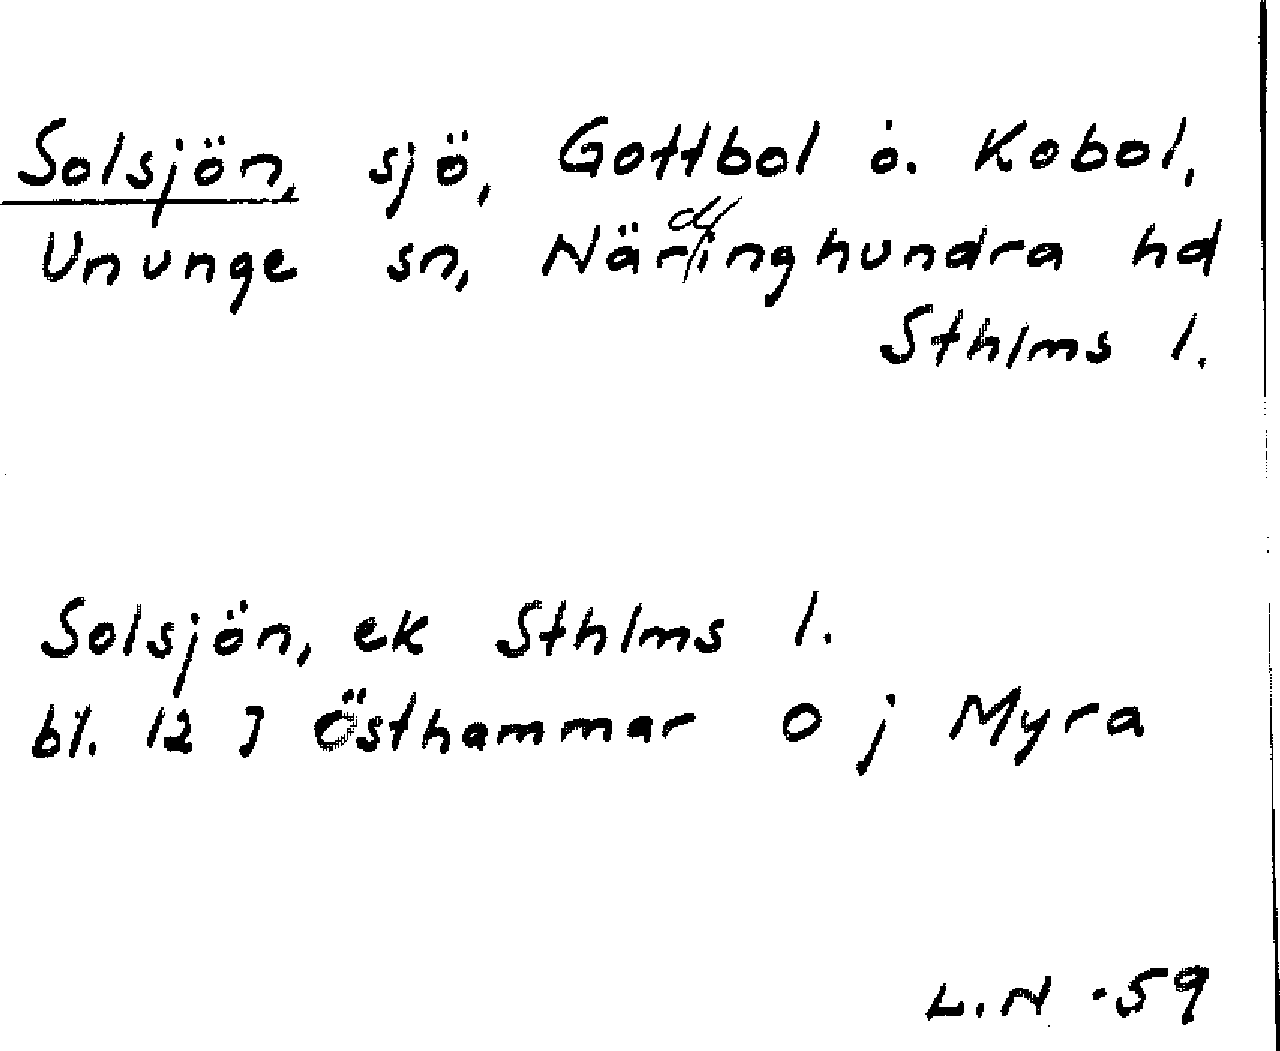 Solsjön, sjö, Gottbol o. Kobol,
Ununge sn, Närdinghundra hd
Sthlms l.
Solsjön, ek Sthlms l.
bl. 12 J Östhammar O j Myra
L.N -59